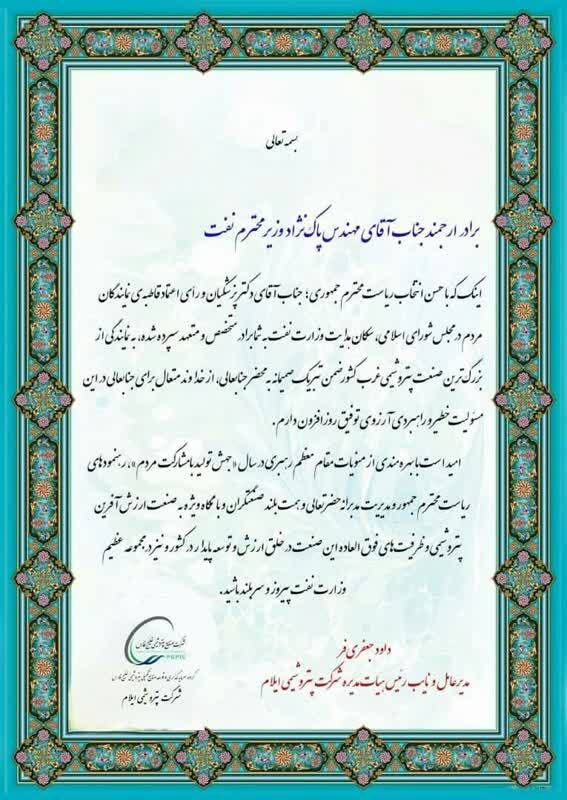 بسمه تعالی
برادر ارجمند جناب آقای مهندس پاک نژاد وزیر محترم نفت
اینک که با حسن انتخاب ریاست محترم جمهوری؛ جناب آقای دکتر پزشکیان و رأی اعتماد قاطبه‌ی نمایندگان
مردم در مجلس شورای اسلامی، سکان هدایت وزارت نفت به شما برادر متخصص و متعهد سپرده شده، به نمایندگی از
بزرگ‌ترین صنعت پتروشیمی غرب کشور ضمن تبریک صمیمانه به محضر جنابعالی، از خداوند متعال برای جنابعالی در این
مسئولیت خطیر و راهبردی آرزوی توفیق روزافزون دارم.
امید است با بهره مندی از منویات مقام معظم رهبری در سال «جهش تولید با مشارکت مردم»، رهنمودهای
ریاست محترم جمهور و مدیریت مدبرانه حضرتعالی و همت بلند صنعتگران و با نگاه ویژه به صنعت ارزش آفرین
پتروشیمی و ظرفیت‌های فوق العاده این صنعت در خلق ارزش و توسعه پایدار در کشور و نیز در مجموعه عظیم
وزارت نفت پیروز و سربلند باشید.
داود جعفری فر
مدیرعامل و نایب رئیس هیات مدیره شرکت پتروشیمی ایلام
شرکت صنایع پتروشیمی خلیج فارس
PGPIC
شرکت پتروشیمی ایلام